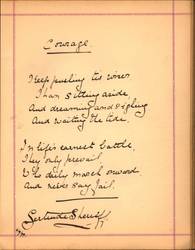 Courage.
Keep pushing tis wiser
Than sitting aside,
And dreaming and sighing
And waiting the tide.
In life's earnest battle
They only prevail
Who daily march onward
And never say fail.
Gertrude